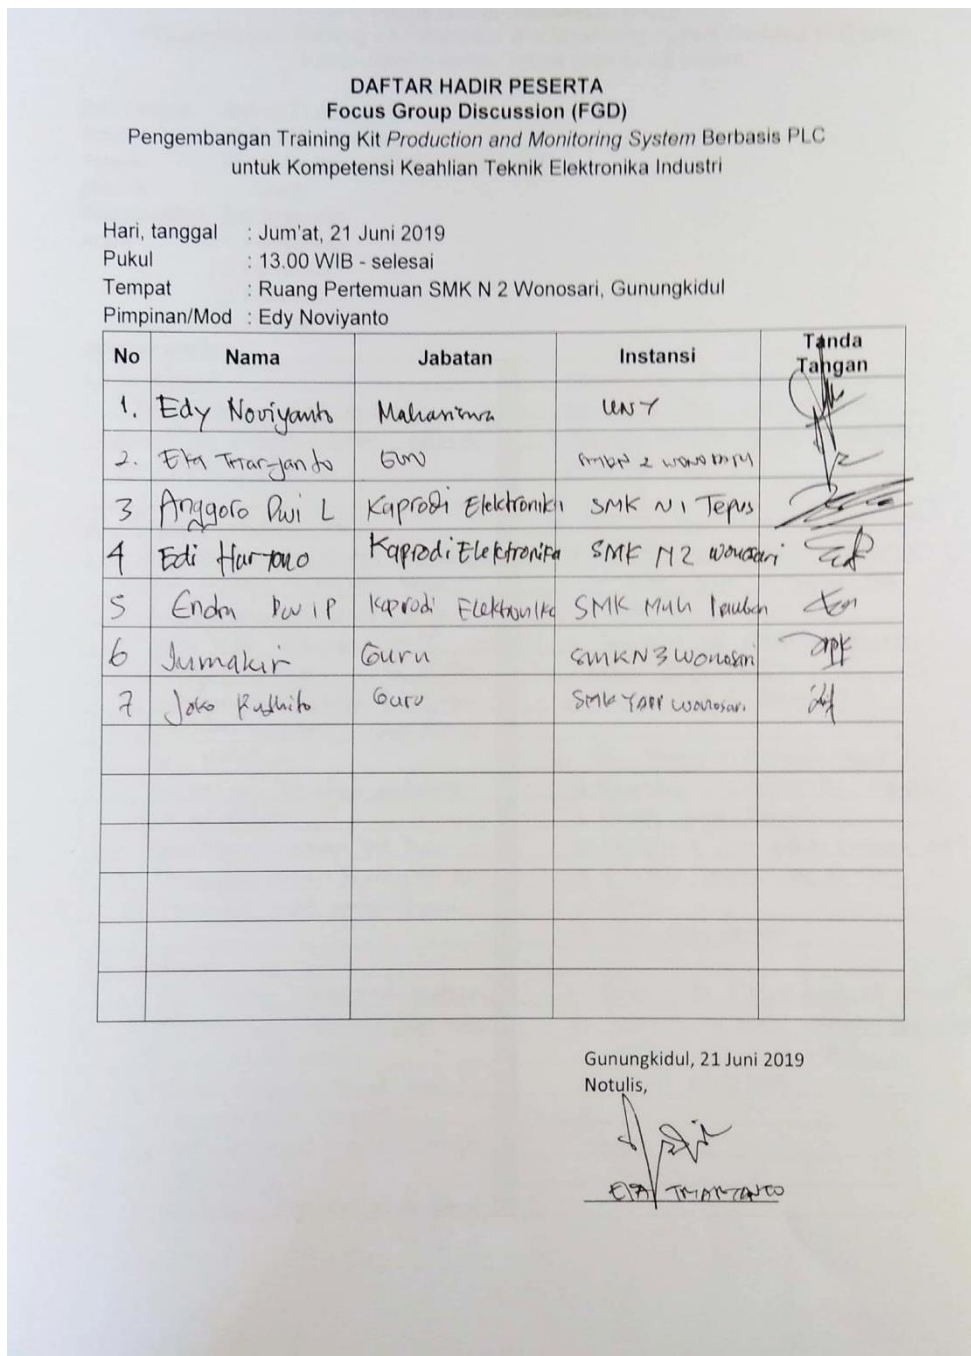 DAFTAR HADIR PESERTA
Focus Group Discussion (FGD)
Pengembangan Training Kit Production and Monitoring System Berbasis PLC
untuk Kompetensi Keahlian Teknik Elektronika Industri
Hari, tanggal : Jum'at, 21 Juni 2019
Pukul : 13.00 WIB - selesai
Tempat : Ruang Pertemuan SMK N 2 Wonosari, Gunungkidul
Pimpinan/Mod : Edy Noviyanto
No Nama Jabatan Instansi Tanda Tangan
1. Edy Noviyanto Mahasiswa UNY
2. Eka Triaryanto Guru SMKN 2 WONOSARI
3 Anggoro Dwi L Kaprodi Elektronika SMK N 1 Tepus
4 Edi Hartono Kaprodi Elektronika SMK N 2 Wonosari
5 Endra Dwi P Kaprodi Elektronika SMK Muh
6 Jumakir Guru SMKN 3 Wonosari
7 Joko Guru SMK YAPP Wonosari
Gunungkidul, 21 Juni 2019
Notulis,
EKA